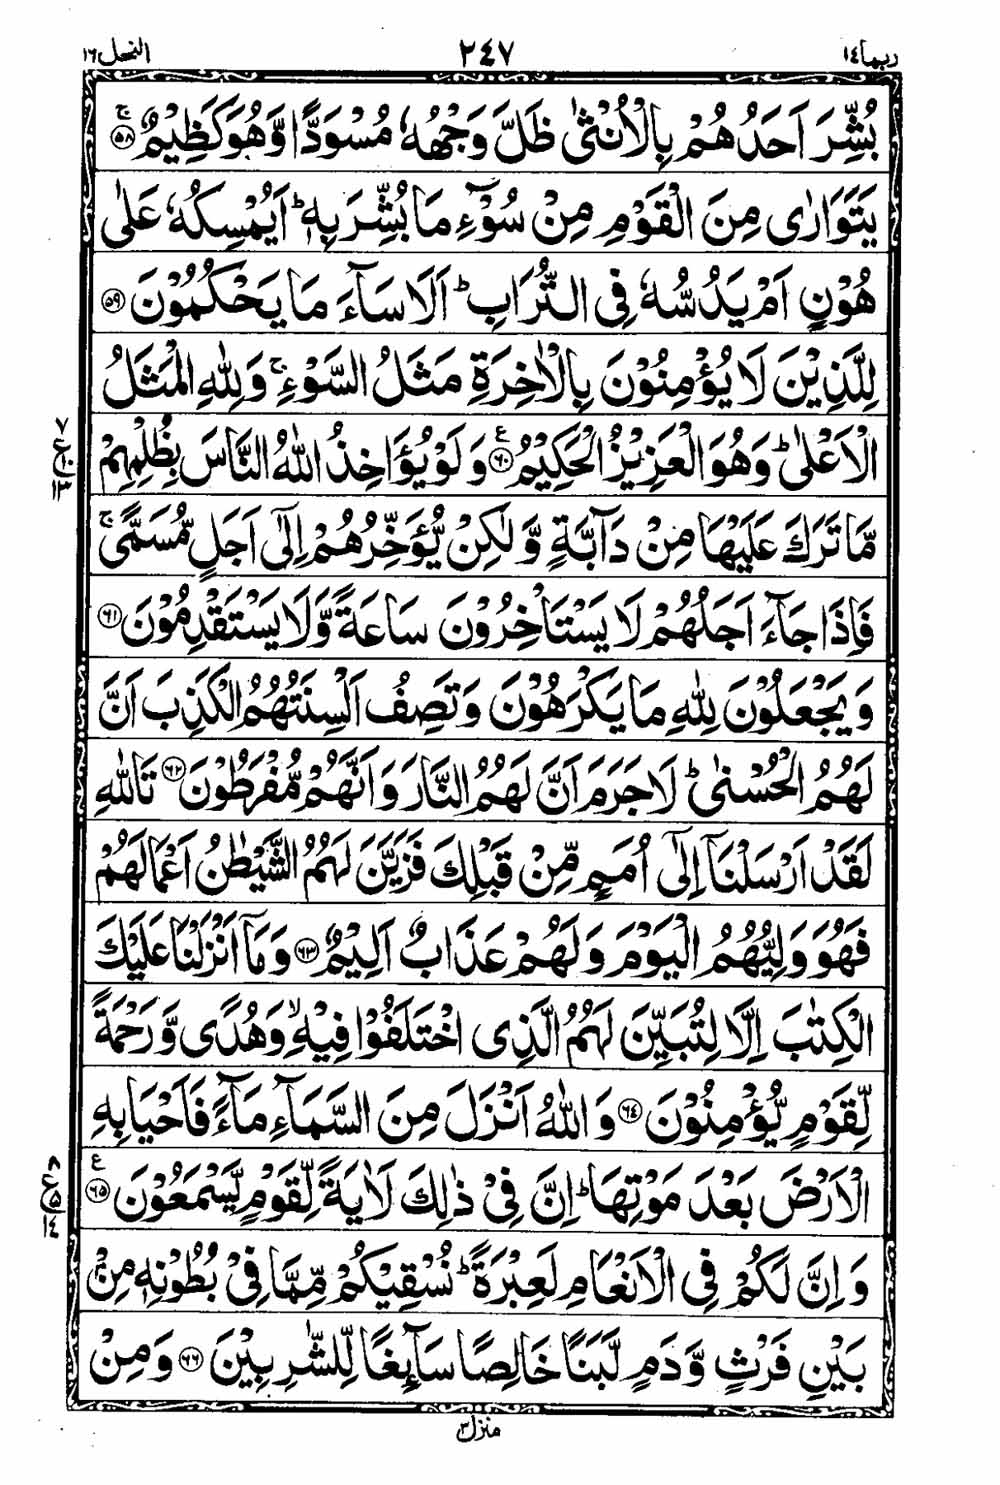 ربما ١٤ ٢٤٧ النحل ١٦
بُشِّرَ اَحَدُهُمْ بِالْاُنْثٰى ظَلَّ وَجْهُهٗ مُسْوَدًّا وَّهُوَ كَظِيْمٌ ۚ‏﴿۵۸﴾
يَتَوَارٰى مِنَ الْقَوْمِ مِنْ سُوْٓءِ مَا بُشِّرَ بِهٖ ؕ اَيُمْسِكُهٗ عَلٰى
هُوْنٍ اَمْ يَدُسُّهٗ فِى التُّرَابِ ؕ اَلَا سَآءَ مَا يَحْكُمُوْنَ ﴿۵۹﴾
لِلَّذِيْنَ لَا يُؤْمِنُوْنَ بِالْاٰخِرَةِ مَثَلُ السَّوْءِ ۚ وَلِلّٰهِ الْمَثَلُ
الْاَعْلٰى ؕ وَهُوَ الْعَزِيْزُ الْحَكِيْمُ ﴿۶۰﴾ ع وَلَوْ يُؤَاخِذُ اللّٰهُ النَّاسَ بِظُلْمِهِمْ
٧ ع ١٠ ١٣
مَّا تَرَكَ عَلَيْهَا مِنْ دَآبَّةٍ وَّلٰكِنْ يُّؤَخِّرُهُمْ اِلٰٓى اَجَلٍ مُّسَمًّى ۚ
فَاِذَا جَآءَ اَجَلُهُمْ لَا يَسْتَاْخِرُوْنَ سَاعَةً وَّلَا يَسْتَقْدِمُوْنَ ﴿۶۱﴾
وَيَجْعَلُوْنَ لِلّٰهِ مَا يَكْرَهُوْنَ وَتَصِفُ اَلْسِنَتُهُمُ الْكَذِبَ اَنَّ
لَهُمُ الْحُسْنٰى ؕ لَا جَرَمَ اَنَّ لَهُمُ النَّارَ وَاَنَّهُمْ مُّفْرَطُوْنَ ﴿۶۲﴾ تَاللّٰهِ
لَقَدْ اَرْسَلْنَاۤ اِلٰٓى اُمَمٍ مِّنْ قَبْلِكَ فَزَيَّنَ لَهُمُ الشَّيْطٰنُ اَعْمَالَهُمْ
فَهُوَ وَلِيُّهُمُ الْيَوْمَ وَلَهُمْ عَذَابٌ اَلِيْمٌ ﴿۶۳﴾ وَمَاۤ اَنْزَلْنَا عَلَيْكَ
الْكِتٰبَ اِلَّا لِتُبَيِّنَ لَهُمُ الَّذِى اخْتَلَفُوْا فِيْهِ ۙ وَهُدًى وَّرَحْمَةً
لِّقَوْمٍ يُّؤْمِنُوْنَ ﴿۶۴﴾ وَاللّٰهُ اَنْزَلَ مِنَ السَّمَآءِ مَآءً فَاَحْيَا بِهِ
الْاَرْضَ بَعْدَ مَوْتِهَا ؕ اِنَّ فِىْ ذٰلِكَ لَاٰيَةً لِّقَوْمٍ يَّسْمَعُوْنَ ﴿۶۵﴾ ع
٨ ع ٥ ١٤
وَاِنَّ لَكُمْ فِى الْاَنْعَامِ لَعِبْرَةً ؕ نُسْقِيْكُمْ مِّمَّا فِىْ بُطُوْنِهٖ مِنْۢ
بَيْنِ فَرْثٍ وَّدَمٍ لَّبَنًا خَالِصًا سَآئِغًا لِّلشّٰرِبِيْنَ ﴿۶۶﴾ وَمِنْ
منزل ٣